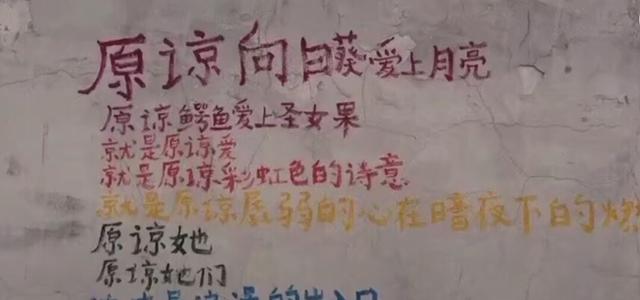 原谅向日葵爱上月亮
原谅鳄鱼爱上圣女果
就是原谅爱
就是原谅彩虹色的诗意
就是原谅孱弱的心在暗夜下的燃
原谅她
原谅她们